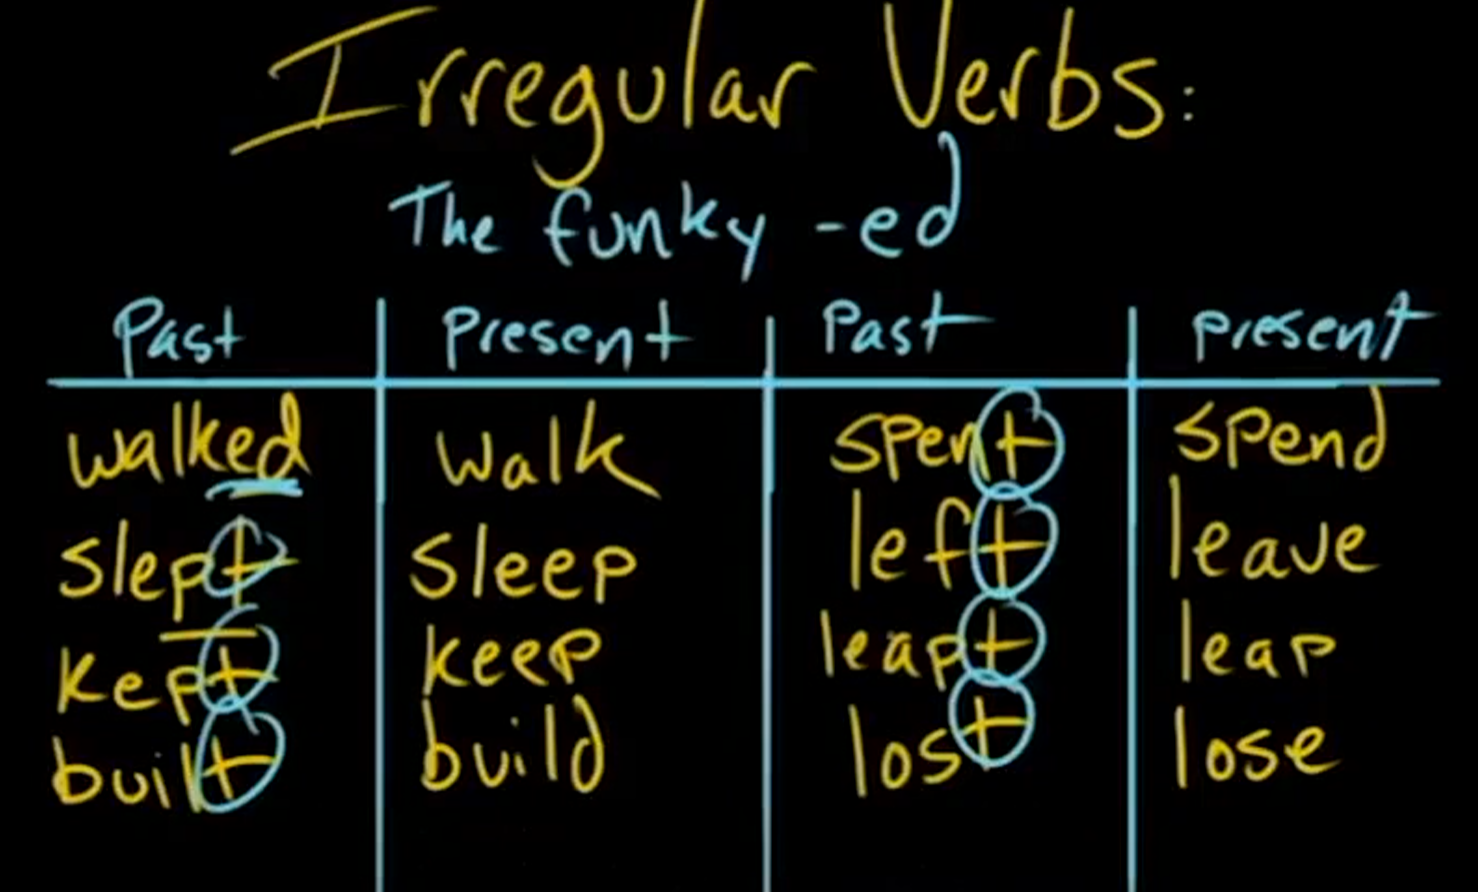 Irregular Verbs:
The funky -ed
Past Present Past present
walked walk spent spend
slept sleep left leave
kept keep leapt leap
built build lost lose